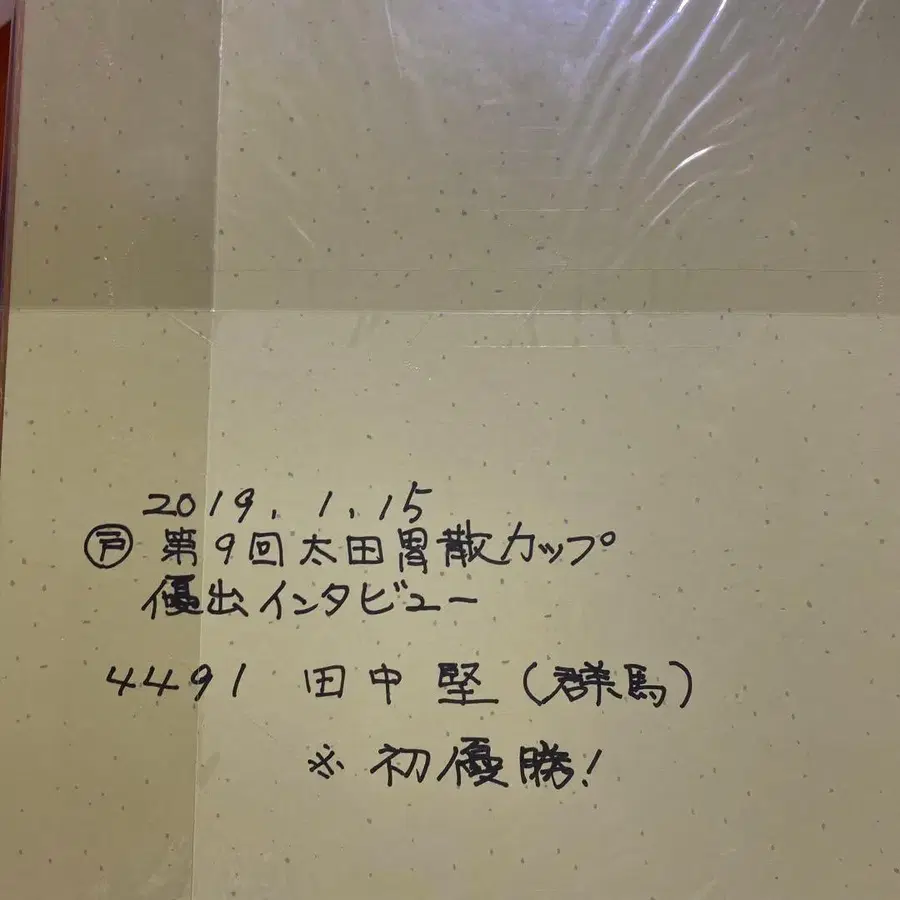 2019.1.15
㋣ 第9回太田胃散カップ
優出インタビュー
4491 田中堅(群馬)
※初優勝!